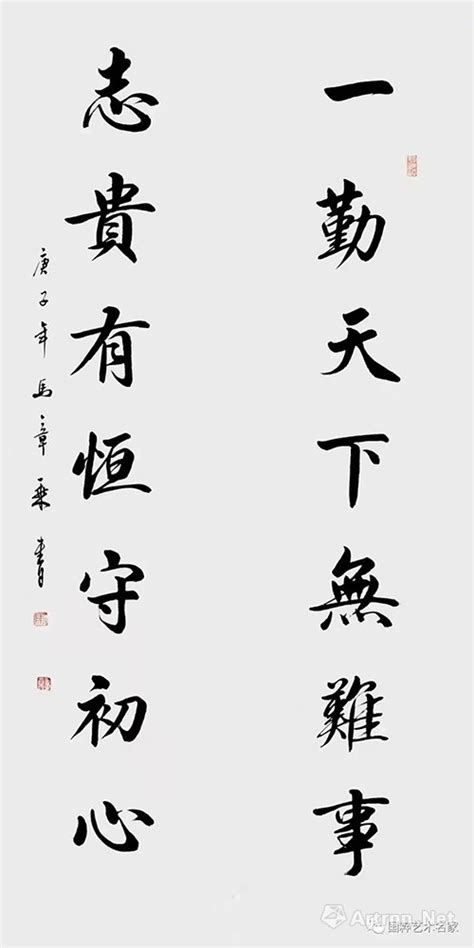 一勤天下無難事
志貴有恒守初心
庚子年馬章乘書
Artron.Net
国粹艺术名家